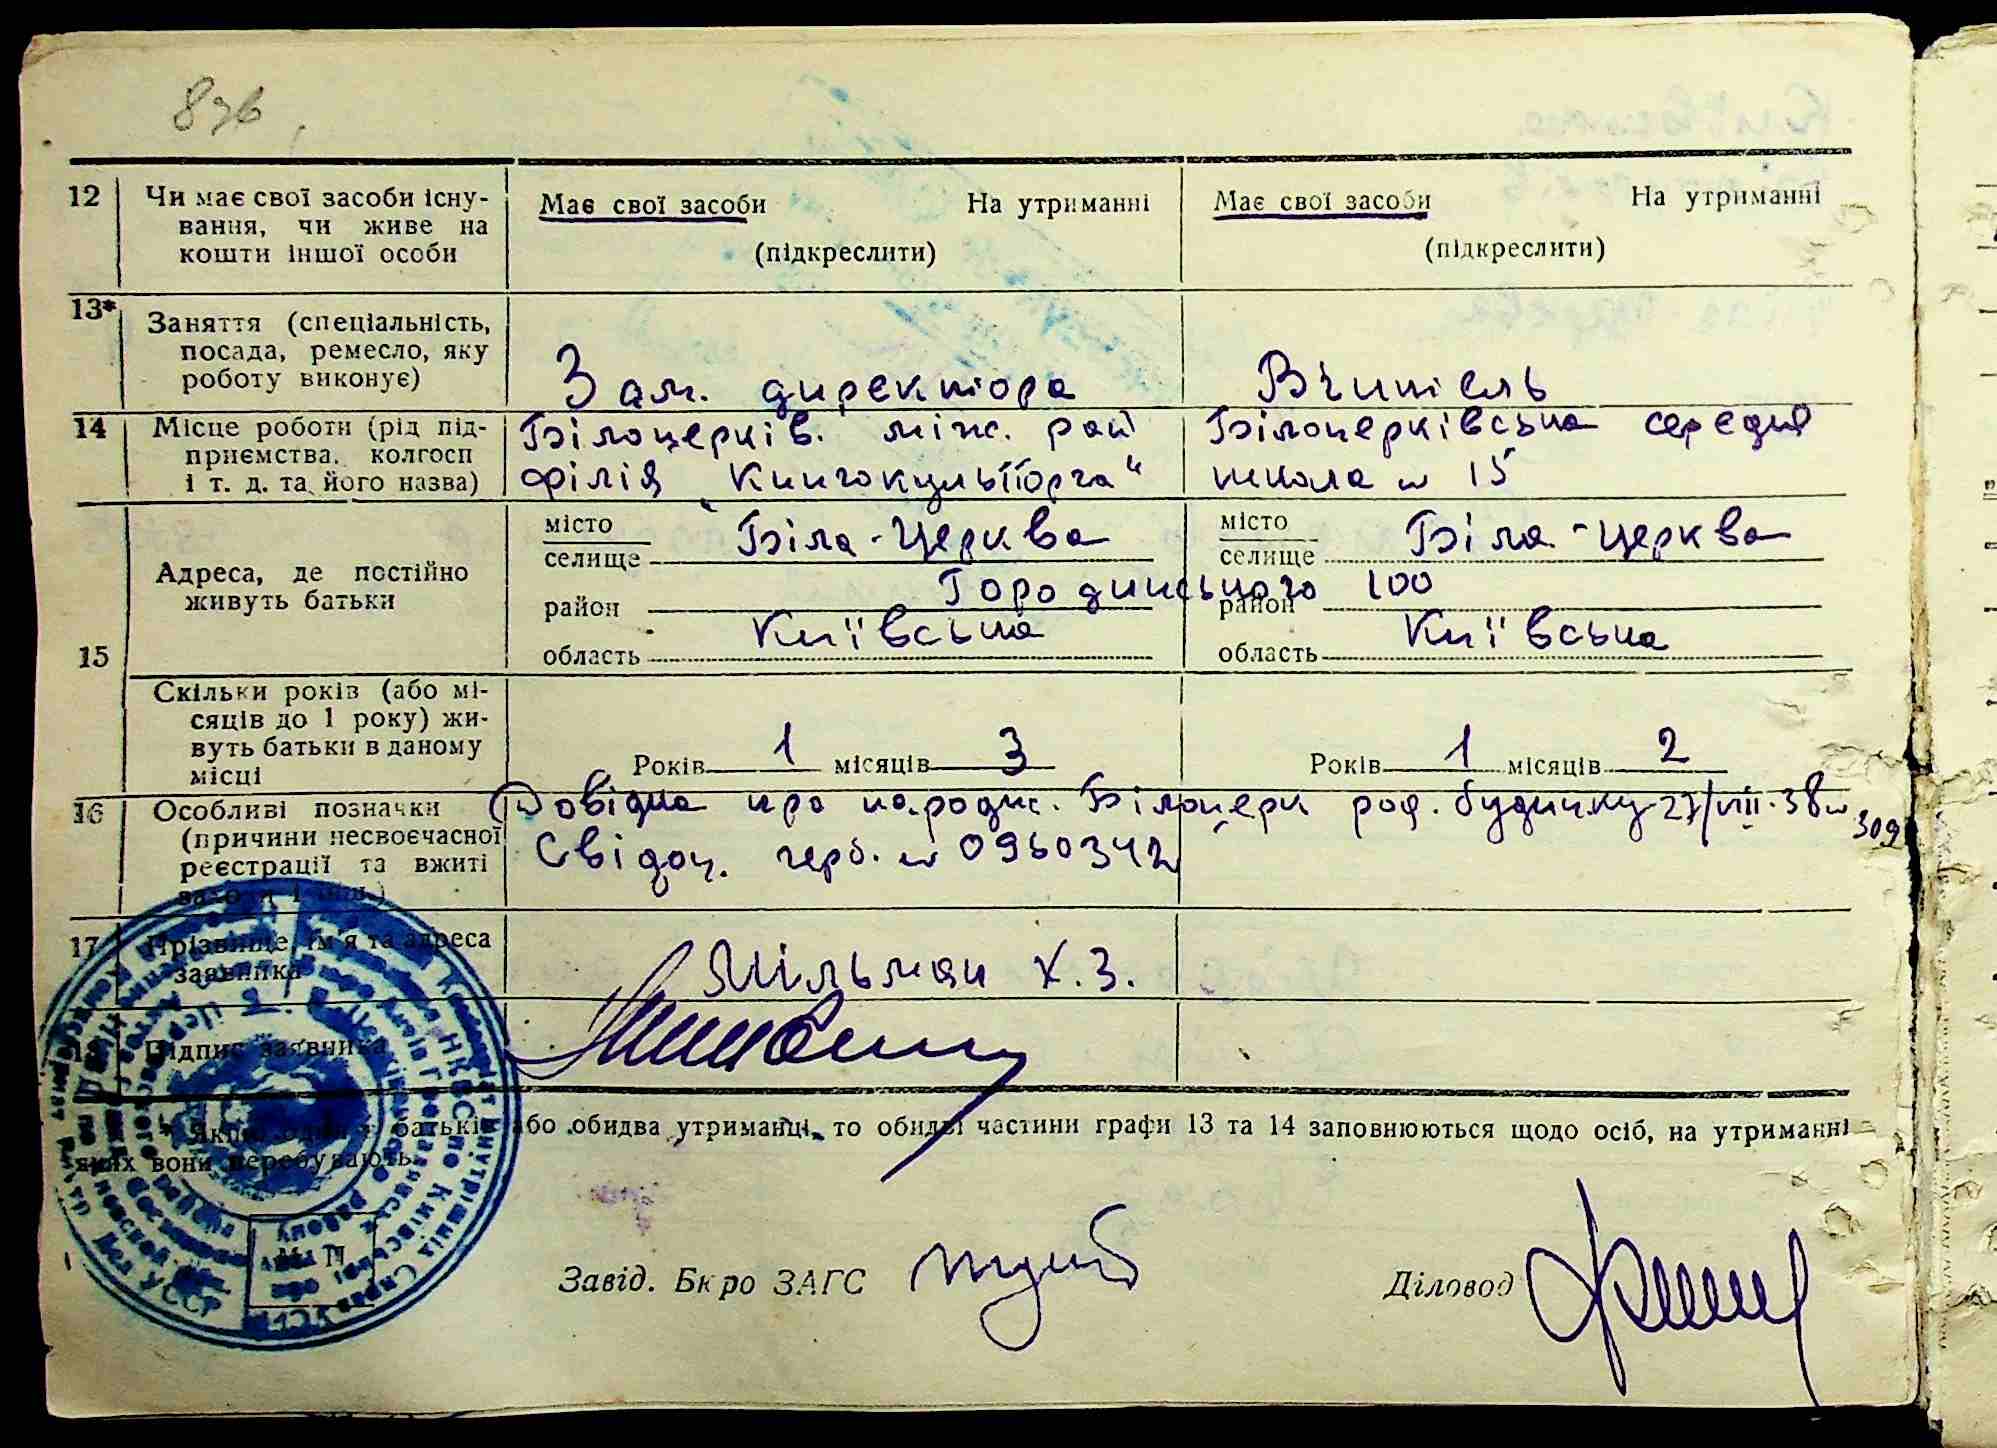 876
12 Чи має свої засоби існу- Має свої засоби На утриманні Має свої засоби На утриманні
вання, чи живе на
кошти іншої особи (підкреслити) (підкреслити)
13*
Заняття (спеціальність,
посада, ремесло, яку
роботу виконує) Зам. директора Вчитель
14 Місце роботи (рід під- Білоцерків. між. рай Білоцерківська середня
приємства, колгосп
і т. д. та його назва) філія „Книгокультторга“ школа № 15
місто Біла-Церква місто Біла-Церква
селище селище
Адреса, де постійно
живуть батьки район Городинського 100 район
15 область Київська область Київська
Скільки років (або мі-
сяців до 1 року) жи-
вуть батьки в даному
місці Років 1 місяців 3 Років 1 місяців 2
16 Особливі позначки Довідка про народж. Білоцерк род. будинку 27/VIII-38 № 309
(причини несвоєчасної
реєстрації та вжиті Свідоц. герб. № 0960342
17 Прізвище, ім'я та адреса
заявника Мільман Х. З.
18 Підпис заявника
* Якщо один з батьків або обидва утриманці, то обидві частини графи 13 та 14 заповнюються щодо осіб, на утриманні
яких вони перебувають.
М. П.
Завід. Бюро ЗАГС Діловод